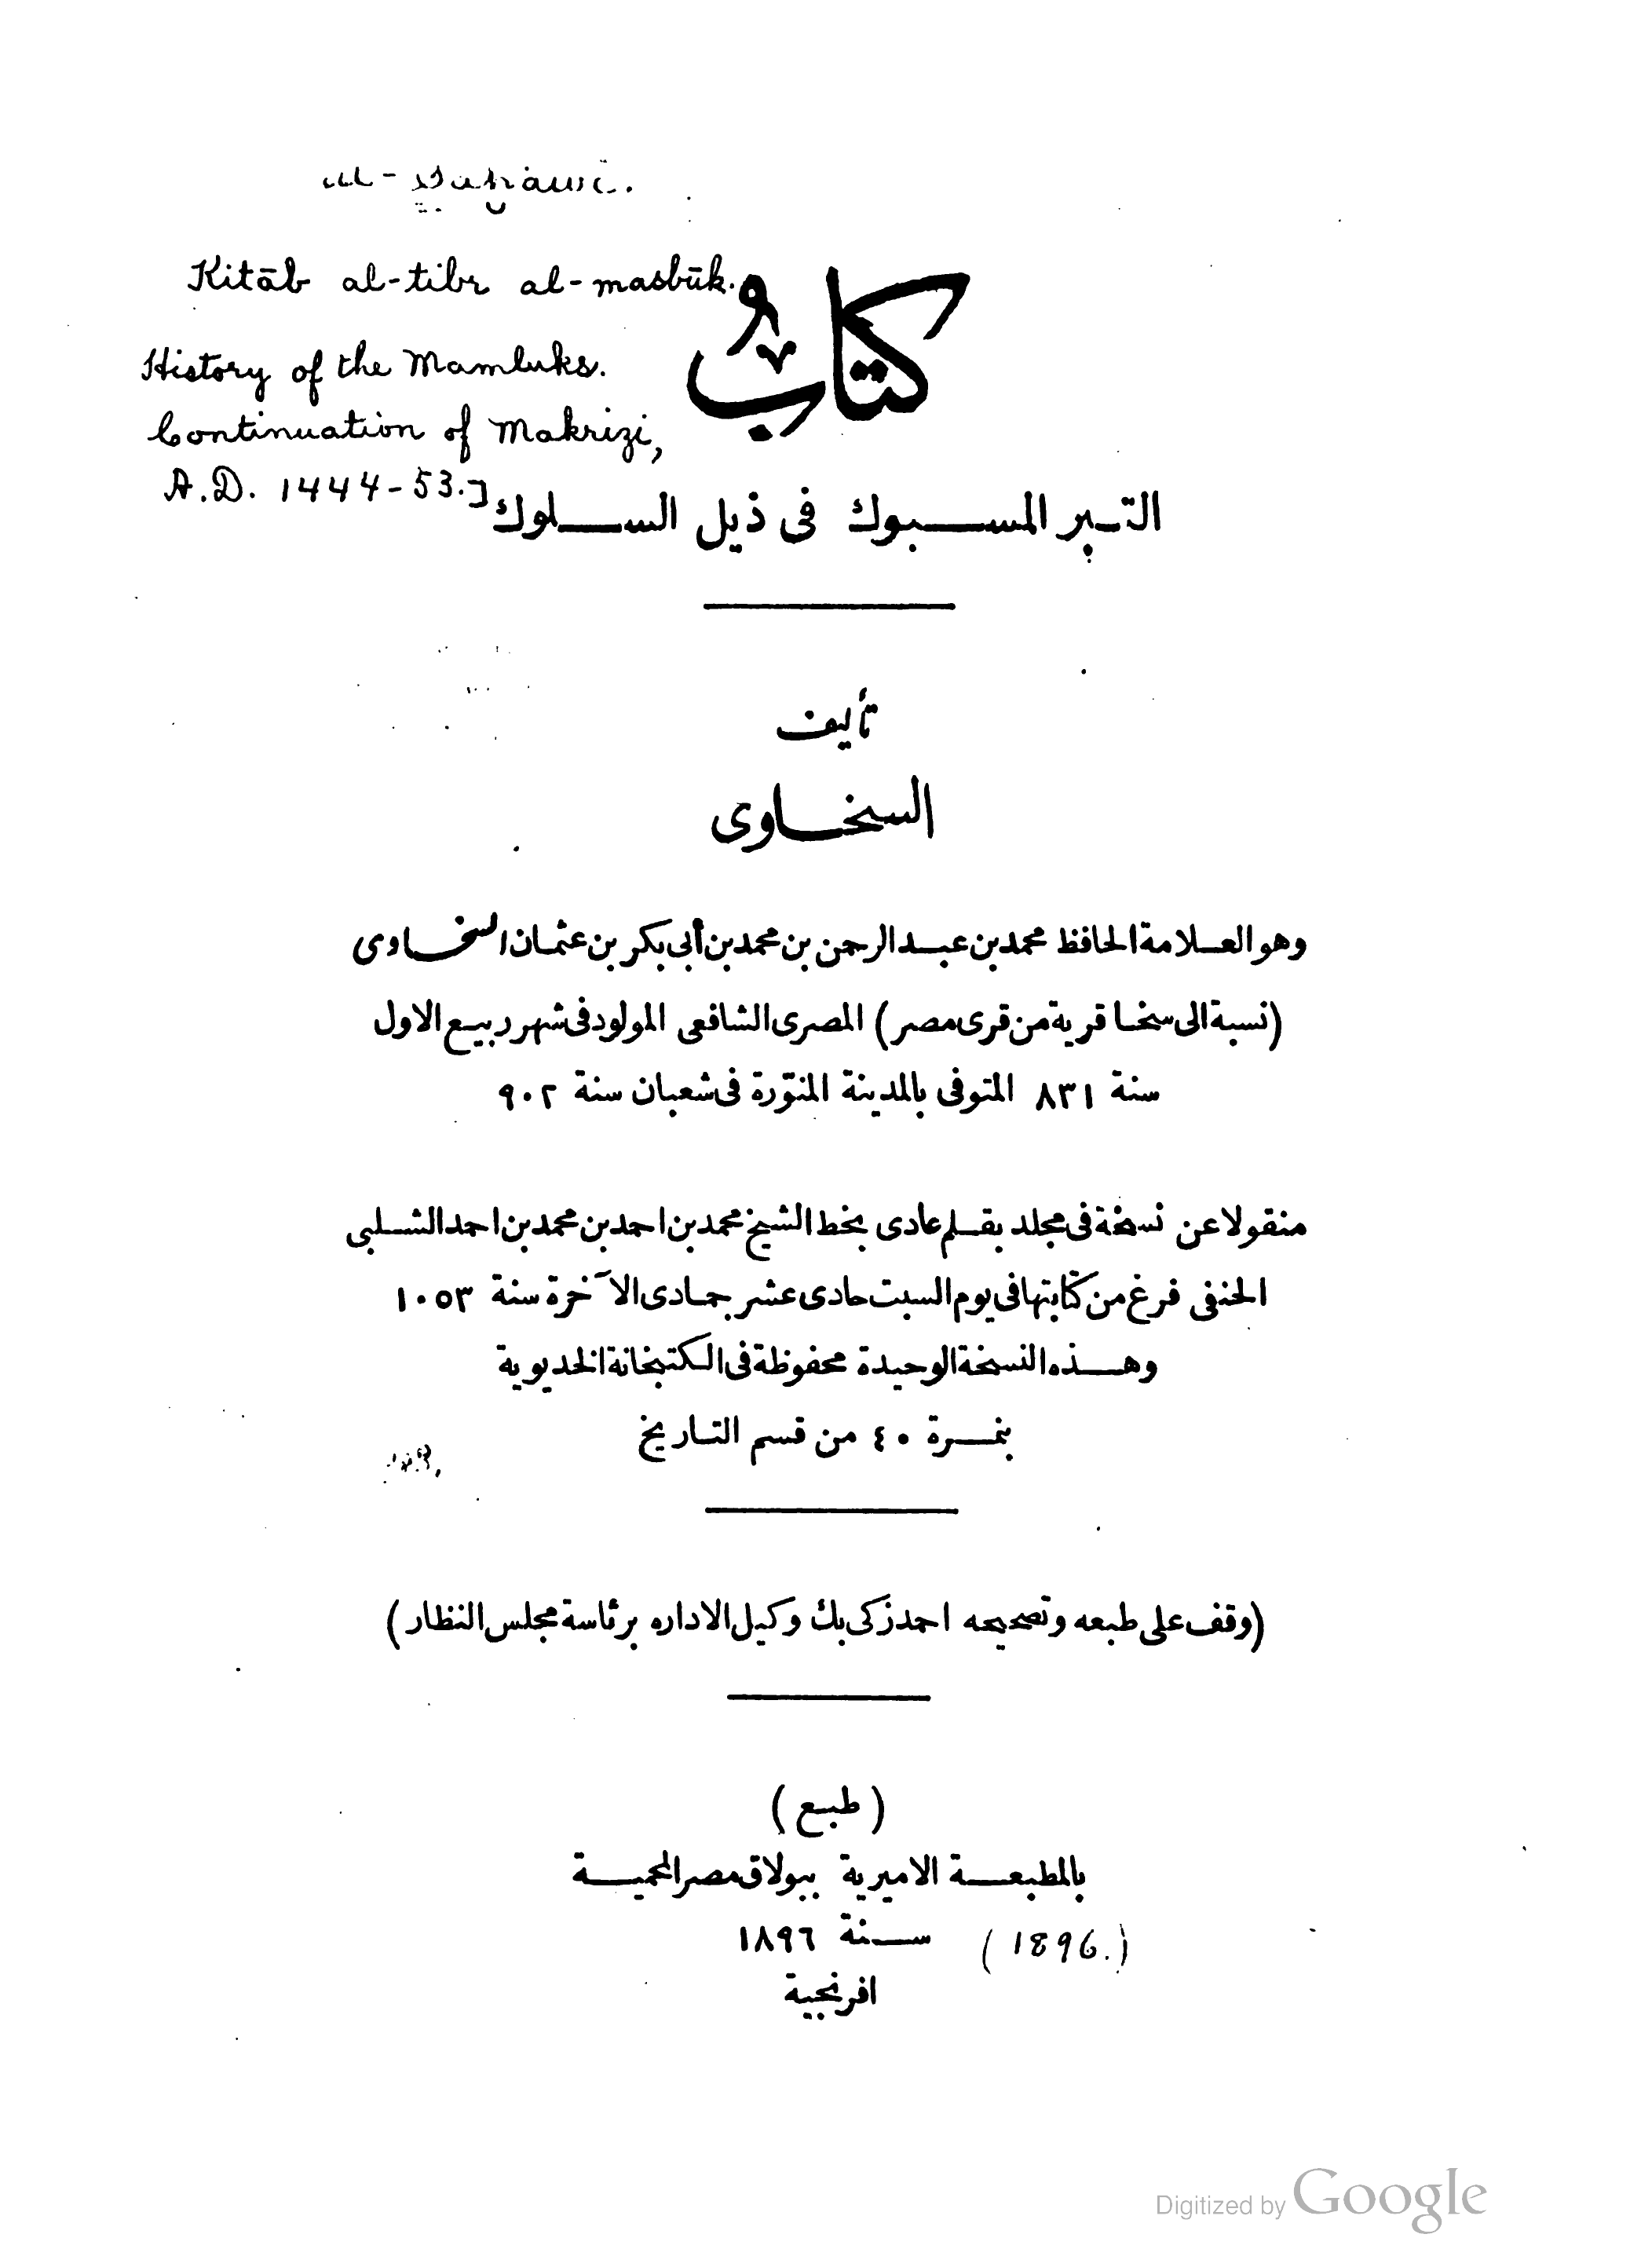 al-Sakhāwī.
Kitāb al-tibr al-masbūk.
كتاب
History of the Mamluks.
Continuation of Makrizi,
A.D. 1444-53.]
التبر المسبوك فى ذيل السلوك
تأليف
السخاوى
وهو العلامة الحافظ محمد بن عبد الرحمن بن محمد بن أبى بكر بن عثمان السخاوى
(نسبة الى سخا قرية من قرى مصر) المصرى الشافعى المولود فى شهر ربيع الاول
سنة ٨٣١ المتوفى بالمدينة المنوّرة فى شعبان سنة ٩٠٢
منقولا عن نسخة فى مجلد بقلم عادى بخط الشيخ محمد بن احمد بن محمد بن احمد الشلبى
الحنفى فرغ من كتابتها فى يوم السبت حادى عشر جمادى الآخرة سنة ١٠٥٣
وهذه النسخة الوحيدة محفوظة فى الكتبخانة الخديوية
بنمرة ٤٠ من قسم التاريخ
(وقف على طبعه وتصحيحه احمد زكى بك وكيل الاداره برئاسة مجلس النظار)
(طبع)
بالمطبعة الاميرية ببولاق مصر المحمية
سنة ١٨٩٦ (1896.)
افرنجية
Digitized by Google